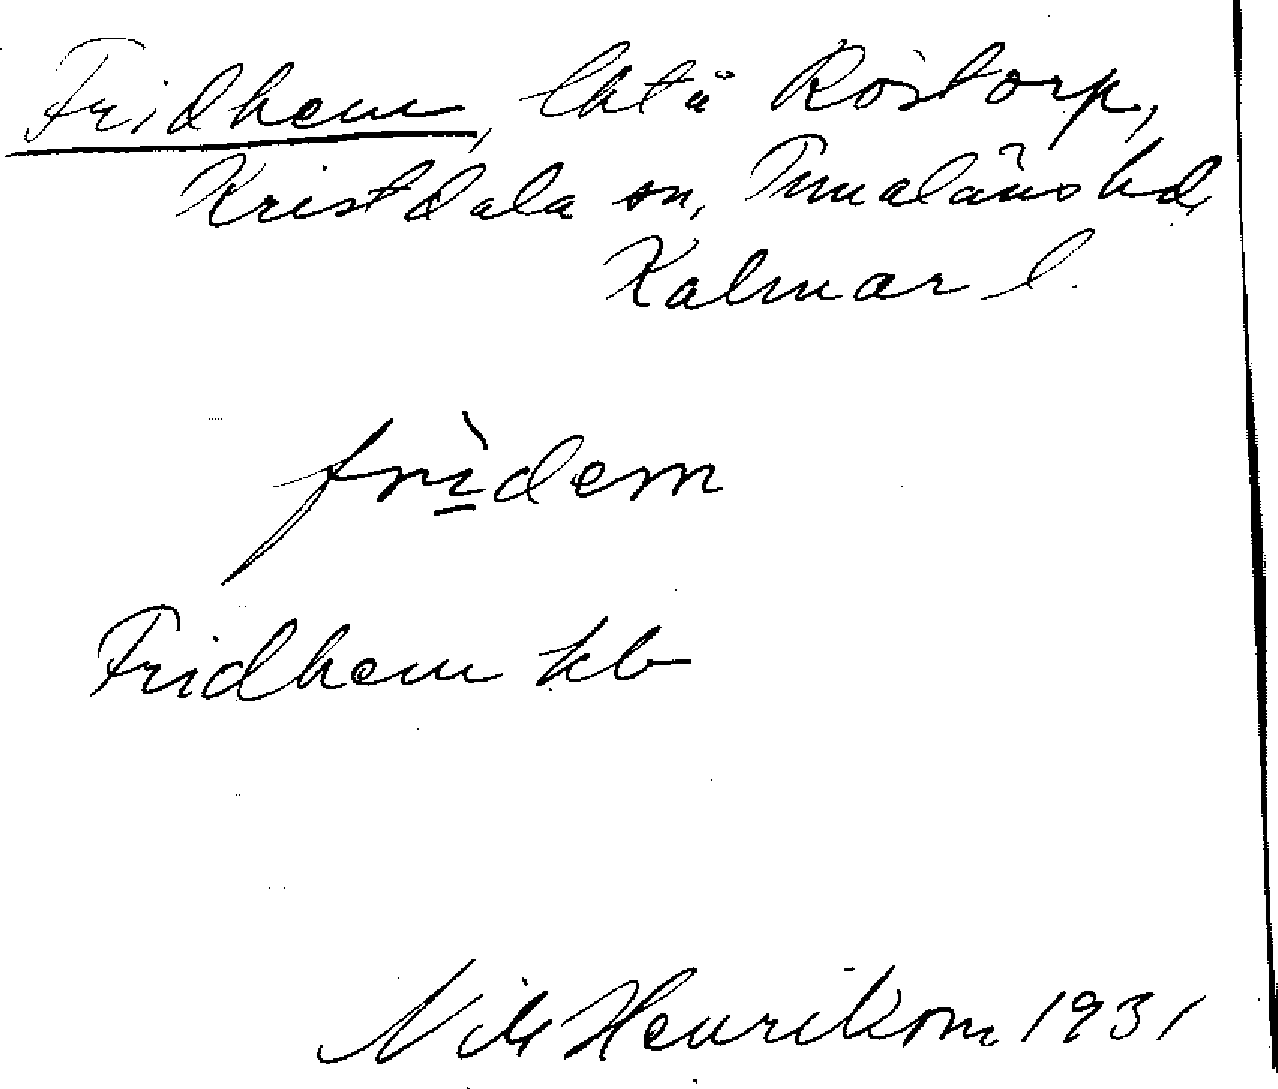 Fridhem, lht å Röstorp,
Kristdala sn, Tunaläns hd,
Kalmar l.
frìdem
Fridhem kb
Nils Henrikson 1931